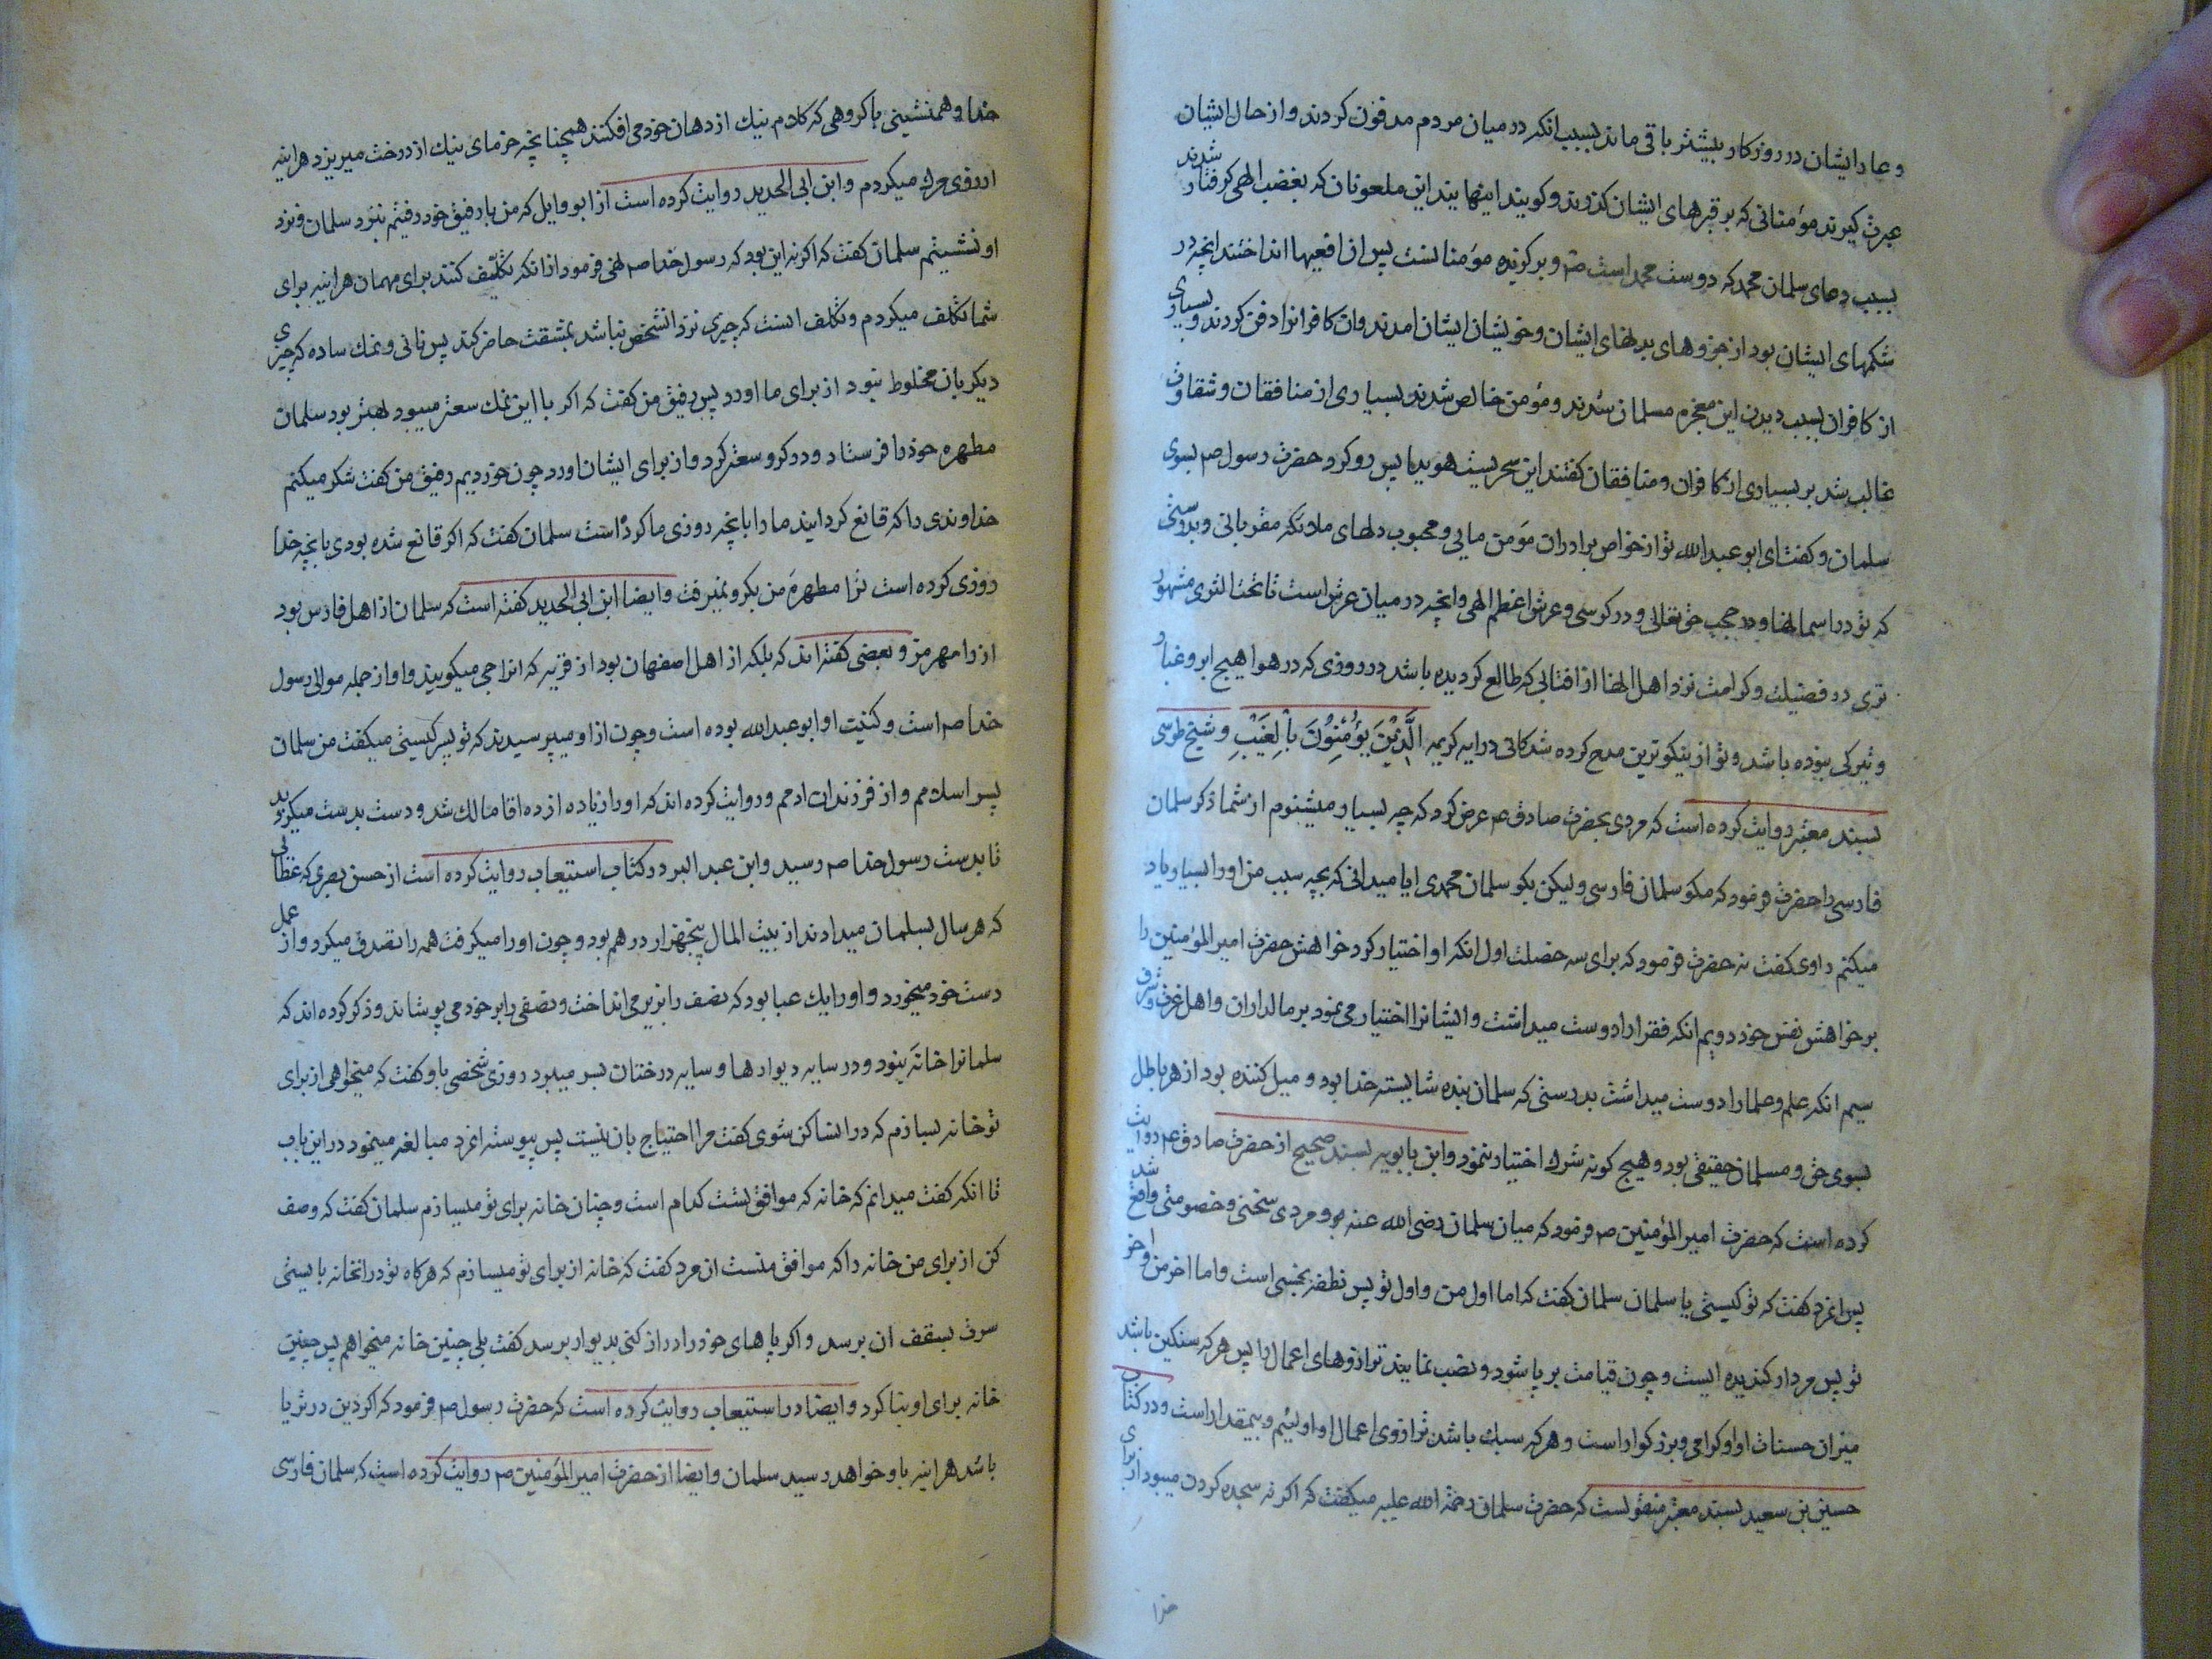 و عار ایشان در روزکار بیشتر باقی ماند بسبب انکه در میان مردم مدفون کردند و از حال ایشان
عبرت کیرند مؤمنانی که بر قبرهای ایشان کذرند و کویند اینهایند این ملعونان که بغضب الهی کرفتار شدند
بسبب دعای سلمان محمد که دوست محمد است صم و برکزیده مؤمنانست پس ان افعیها انداختند انچه در
شکمهای ایشان بود از جزوهای بدنهای ایشان و خویشان ایشان امدند و ان کافرانرا دفن کردند و بسیاری
از کافران بسبب دیدن این معجزه مسلمان شدند و مؤمن خالص شدند بسیاری از منافقان و شقاوت
غالب شد بر بسیاری از کافران و منافقان کفتند این سحریست هویدا پس رو کرد حضرت رسول صم بسوی
سلمان و کفت ای ابو عبد الله تو از خواص برادران مؤمن مایی و محبوب دلهای ملائکه مقربانی و بدرستی
که تو در اسمانها و در حجب حق تعالی و در کرسی و عرش اعظم الهی و انچه در میان عرش است تا تحت الثری مشهور
تری در فضیلت و کرامت نزد اهل انها از افتابی که طالع کردیده باشد در روزی که در هوا هیچ ابر و غبار و
و تیرکی نبوده باشد و تو از نیکوترین مدح کرده شدکانی در ایه کریمه الَّذِیْنَ یُؤْمِنُوْنَ بِالْغَیْبِ و شیخ طوسی
بسند معتبر روایت کرده است که مردی بحضرت صادق عم عرض کرد که چه بسیار میشنوم از شما ذکر سلمان
فارسی را حضرت فرمود که مکو سلمان فارسی و لیکن بکو سلمان محمدی ایا میدانی که بچه سبب من او را بسیار یاد
میکنم راوی کفت نه حضرت فرمود که برای سه خصلت اول انکه او اختیار کرد خواهش حضرت امیر المؤمنین را
بر خواهش نفس خود دویم انکه فقرا را دوست میداشت و ایشانرا اختیار می نمود بر مالداران و اهل عزت و شرف
سیم انکه علم و علما را دوست میداشت بدرستی که سلمان بنده شایسته خدا بود و میل کننده بود از هر باطل
بسوی حق و مسلمان حقیقی بود و هیچ کونه شرک اختیار ننمود و ابن بابویه بسند صحیح از حضرت صادق عم روایت
کرده است که حضرت امیر المؤمنین صم فرمود که میان سلمان رضی الله عنه و مردی سخنی و خصومتی واقع شد
پس انمرد کفت که تو کیستی یا سلمان سلمان کفت که اما اول من و اول تو پس نطفه نجسی است و اما اخر من و اخر
تو پس مردار کندیده ایست و چون قیامت بر پا شود و نصب نمایند ترازوهای اعمال را پس هر که سنکین باشد
میزان حسنات او او کرامی و بزرکوار است و هر که سبک باشد ترازوی اعمال او او لئیم و بیمقدار است و در کتاب
حسین بن سعید بسند معتبر منقولست که حضرت سلمان رحمة الله علیه میکفت که اکر نه سجده کردن میبود از برای
خدا
خدا و همنشینی با کروهی که کلام نیک از دهان خود می افکنند همچنانچه خرمای نیک از درخت میریزد هراینه
ارزوی مرک میکردم و ابن ابی الحدید روایت کرده است از ابو وایل که من با رفیق خود رفیتم بنزد سلمان و نزد
او نشستیم سلمان کفت که اکر نه این بود که رسول خدا صم نهی فرمود از انکه تکلیف کنند برای مهمان هراینه برای
شما تکلف میکردم و تکلف انست که چیزی نزد انشخص نباشد بمشقت حاضر کند پس نانی و نمک ساده که چیزی
دیکر بان مخلوط نبود از برای ما اورد پس رفیق من کفت که اکر با این نمک سعتر میبود بهتر بود سلمان
مطهره خود را فرستاد و در کرو سعتر کرد و از برای ایشان اورد چون خوردیم رفیق من کفت شکر میکنم
خداوندی را که قانع کردانید ما را بانچه روزی ما کرده است سلمان کفت که اکر قانع شده بودی بانچه خدا
روزی کرده است ترا مطهره من بکرو نمیرفت و ایضا ابن ابی الحدید کفته است که سلمان از اهل فارس بود
از رامهرمز و بعضی کفته اند که بلکه از اهل اصفهان بود از قریه که انرا جی میکویند و او از جمله موالی رسول
خدا صم است و کنیت او ابو عبد الله بوده است و چون از او میپرسیدند که تو پسر کیستی میکفت من سلمان
پسر اسلامم و از فرزندان ادمم و روایت کرده اند که او را زیاده از ده اقا مالک شد و دست بدست میکردید
تا بدست رسول خدا صم رسید و ابن عبد البر در کتاب استیعاب روایت کرده است از حسن بصری که عطائی
که هر سال بسلمان میدادند از بیت المال پنجهزار درهم بود و چون او را میکرفت همه را تصدق میکرد و از عمل
دست خود میخورد و او را یک عبا بود که نصف را بزیر می انداخت و نصفی را بر خود می پوشاند و ذکر کرده اند که
سلمانرا خانه نبود و در سایه دیوارها و سایه درختان بسر میبرد روزی شخصی باو کفت که میخواهی از برای
تو خانه بسازم که در انساکن شوی کفت مرا احتیاج بان نیست پس پیوسته انمرد مبالغه مینمود در این باب
تا انکه کفت میدانم که خانه که موافق تست کدام است و چنان خانه برای تو میسازم سلمان کفت که وصف
کن از برای من خانه را که موافق منست ان مرد کفت که خانه از برای تو میسازم که هرکاه تو در انخانه بایستی
سرت بسقف ان برسد و اکر پاهای خود را دراز کنی بدیوار برسد کفت بلی چنین خانه میخواهم پس چنین
خانه برای او بنا کرد و ایضا در استیعاب روایت کرده است که حضرت رسول صم فرمود که اکر دین در ثریا
باشد هراینه باو خواهد رسید سلمان و ایضا از حضرت امیر المؤمنین صم روایت کرده است که سلمان فارسی